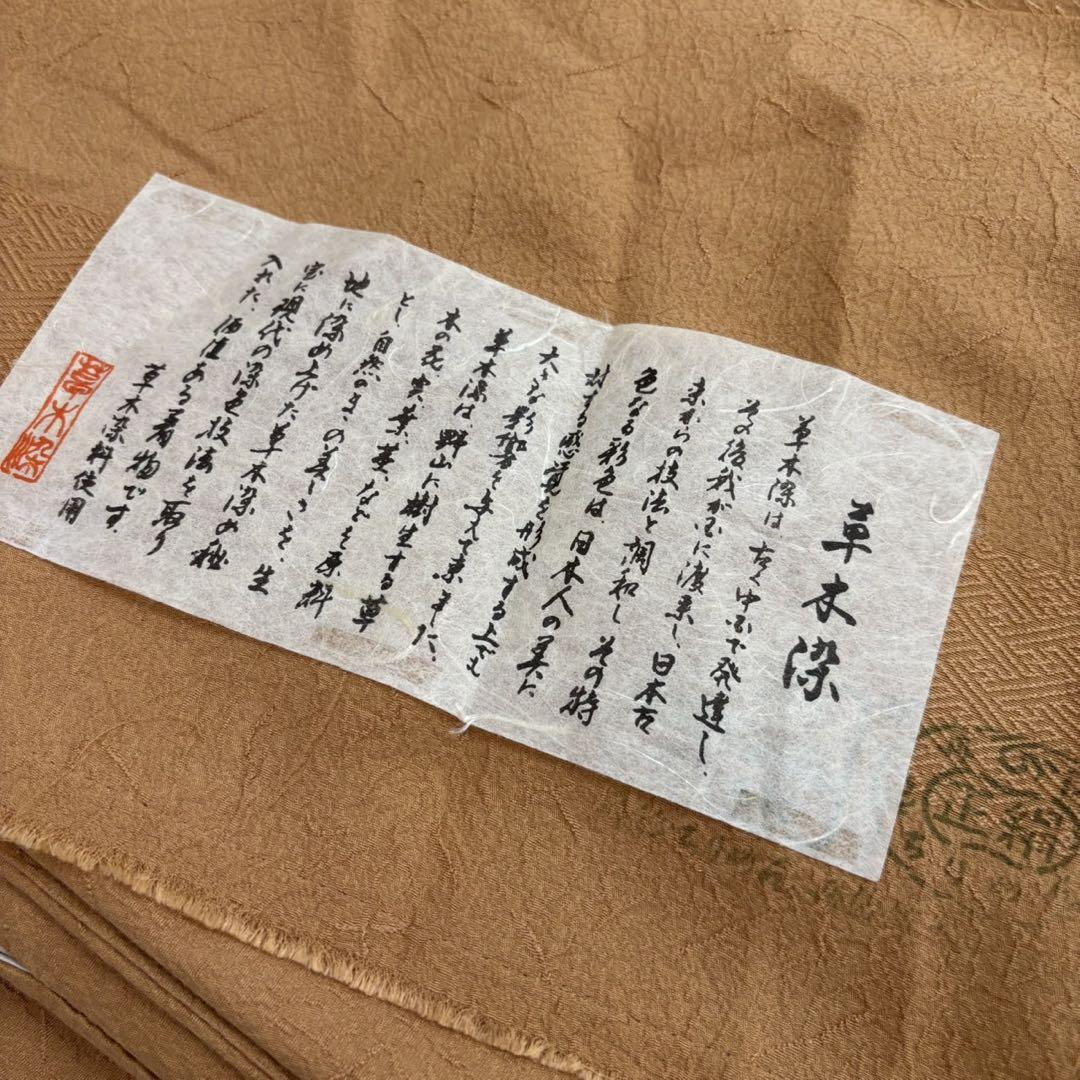 草木染
草木染は、古く中国で発達し、
その後我が国に渡来し、日本古
来からの技法と調和し、その特
色なる彩色は、日本人の美に
対する感覚を形成する上でも
大きな影響を与えて来ました。
草木染は野山に樹生する草
木の花、実、葉、茎、などを原料
とし、自然のまゝの美しさを、生
地に染め上げた草木染の秘
宝に現代の染色技法を取り
入れた、価値ある着物です。
草木染料使用
草木染